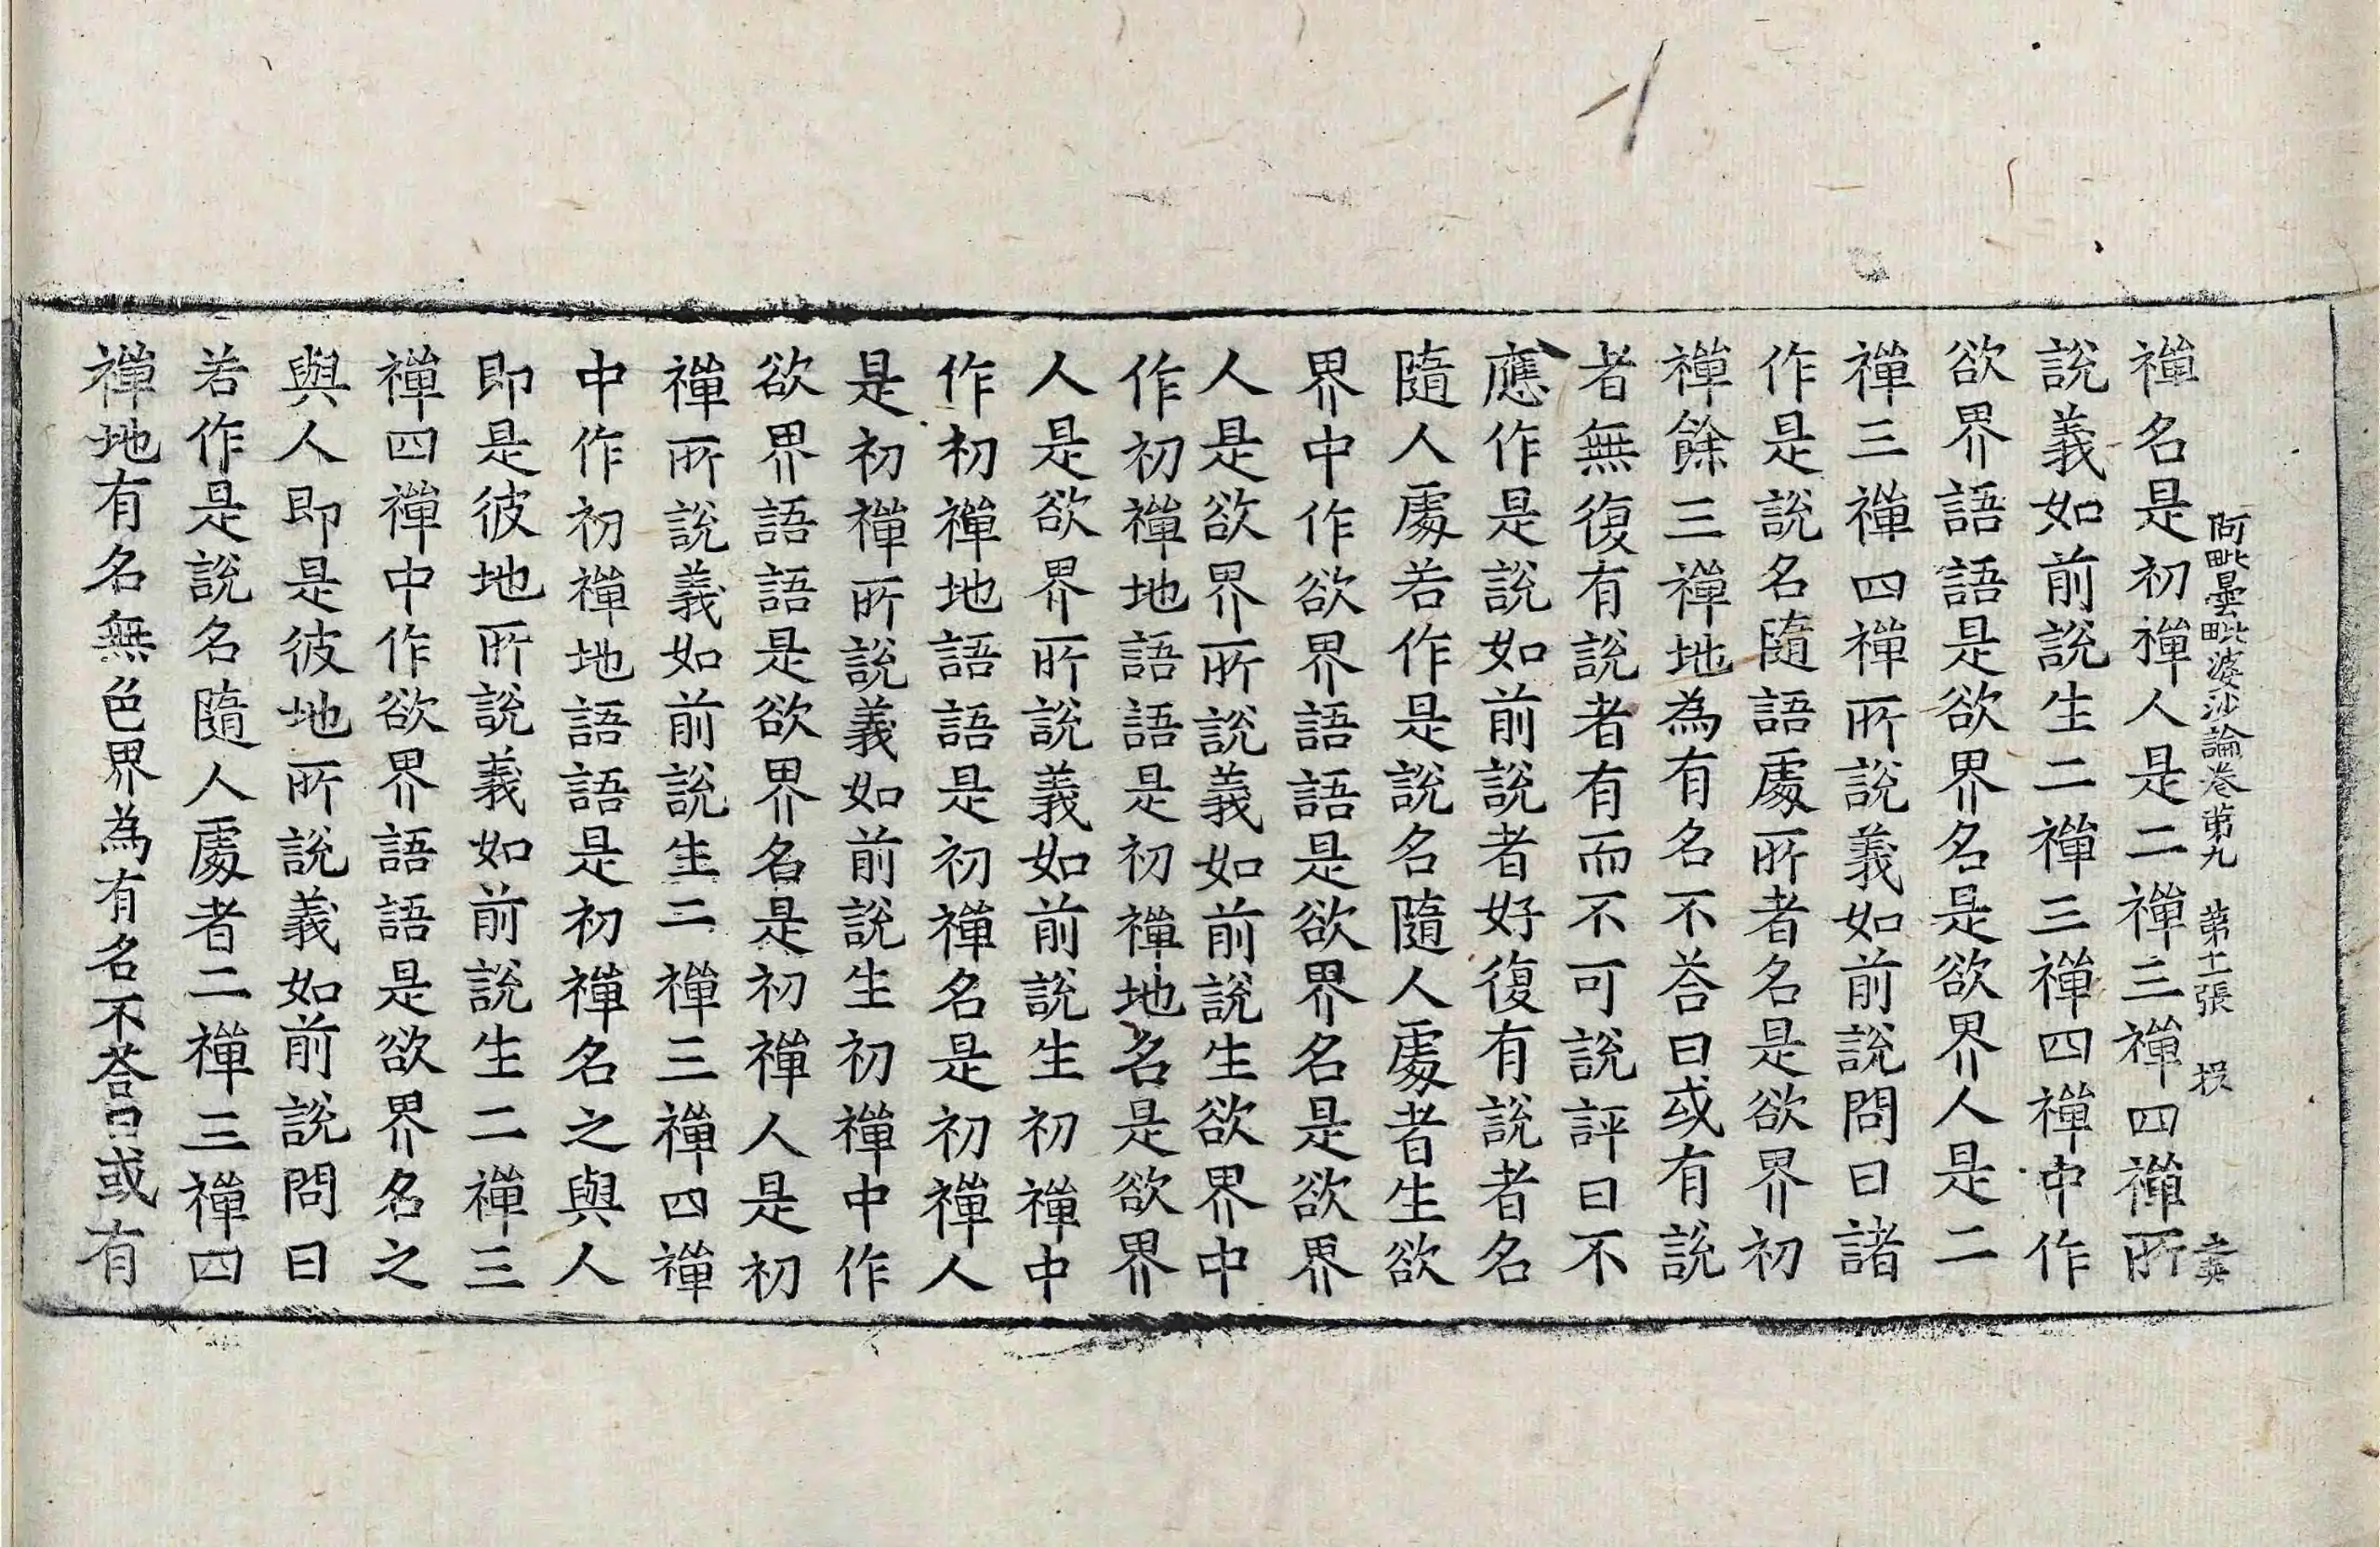 阿毗曇毗婆沙論卷第九 第十二張 投
禪名是初禪人是二禪三禪四禪所
說義如前說生二禪三禪四禪中作
欲界語語是欲界名是欲界人是二
禪三禪四禪所說義如前說問曰諸
作是說名隨語處所者名是欲界初
禪餘三禪地為有名不荅曰或有說
者無復有說者有而不可說評曰不
應作是說如前說者好復有說者名
隨人處若作是說名隨人處者生欲
界中作欲界語語是欲界名是欲界
人是欲界所說義如前說生欲界中
作初禪地語語是初禪地名是欲界
人是欲界所說義如前說生初禪中
作初禪地語語是初禪名是初禪人
是初禪所說義如前說生初禪中作
欲界語語是欲界名是初禪人是初
禪所說義如前說生二禪三禪四禪
中作初禪地語語是初禪名之與人
即是彼地所說義如前說生二禪三
禪四禪中作欲界語語是欲界名之
與人即是彼地所說義如前說問曰
若作是說名隨人處者二禪三禪四
禪地有名無色界為有名不荅曰或有